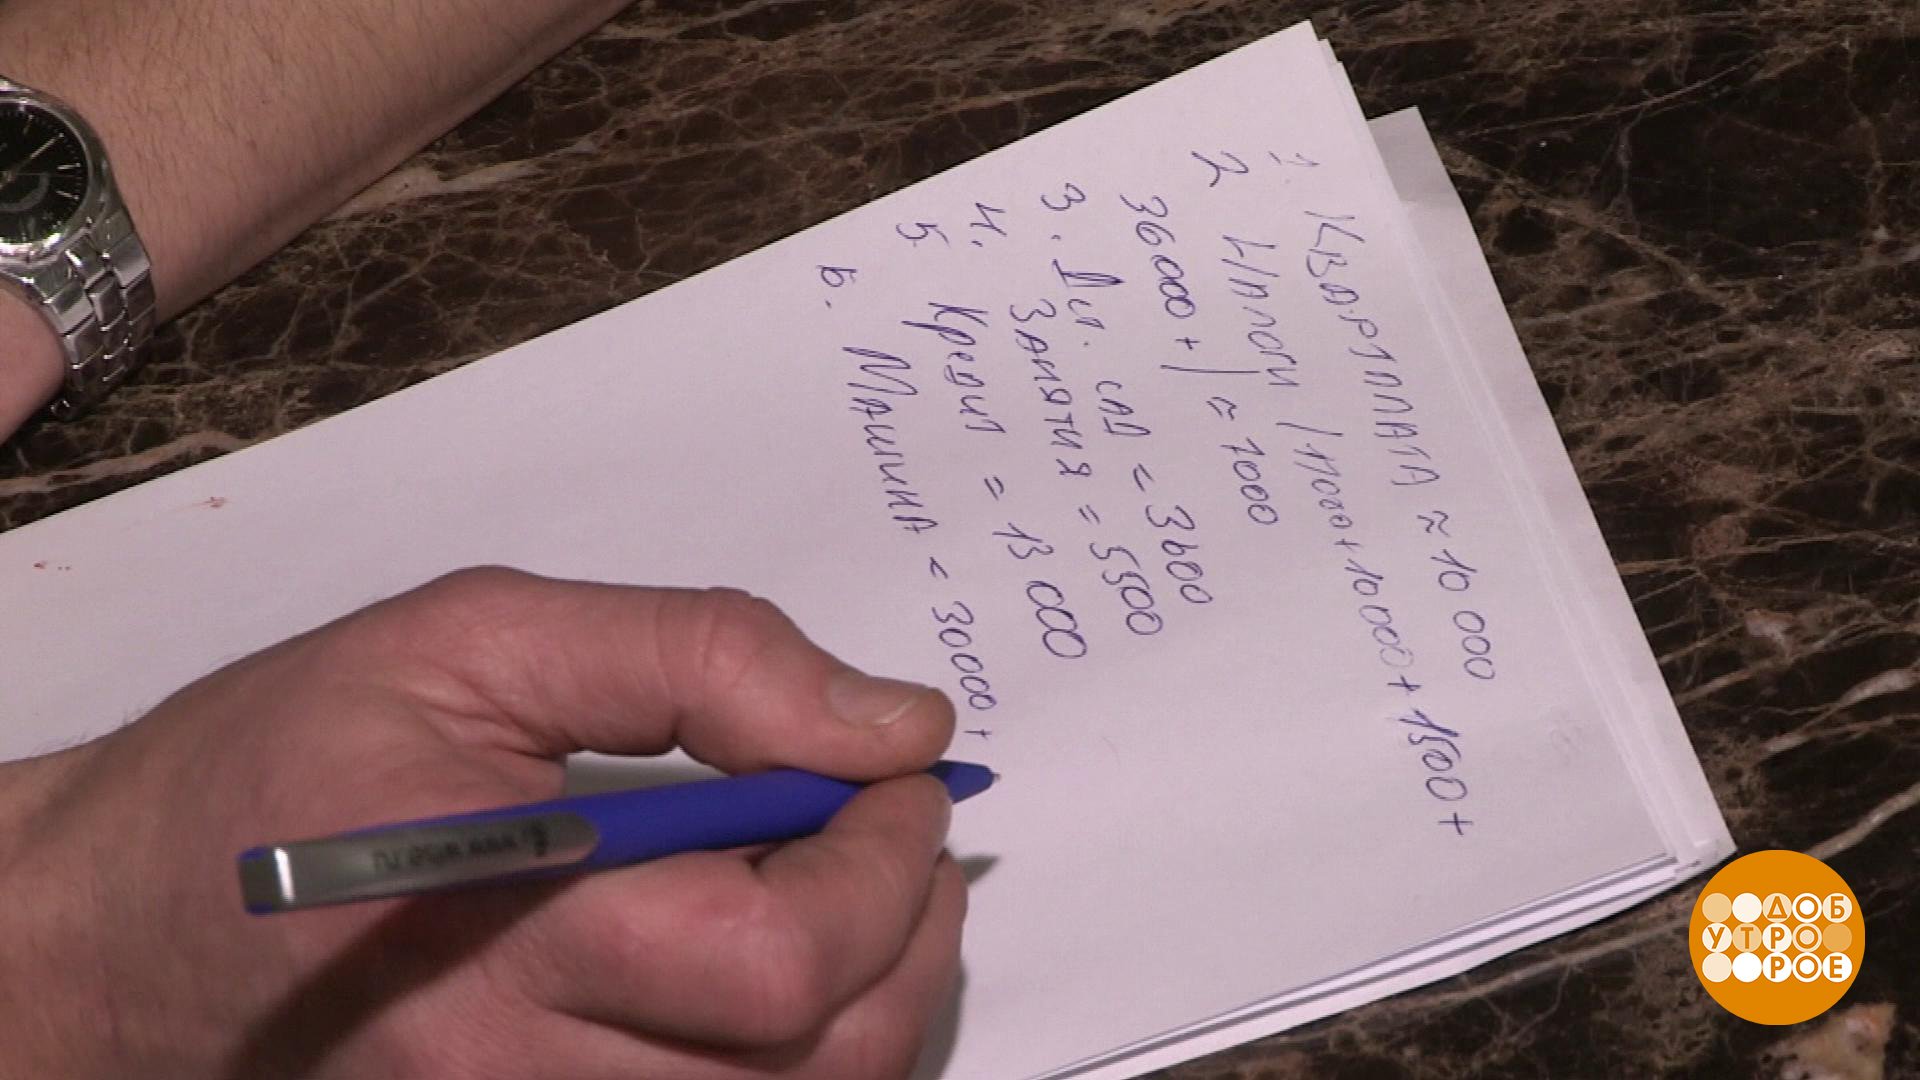 1. КВАРТПЛАТА ≈ 10 000
2 НАЛОГИ (17000+10000+1500+
36000+) ≈ 7000
3. Дет. САД = 3600
4. ЗАНЯТИЯ = 5500
5. Кредит = 13 000
6. МАШИНА = 30000+
ДОБ
УТРО
РОЕ